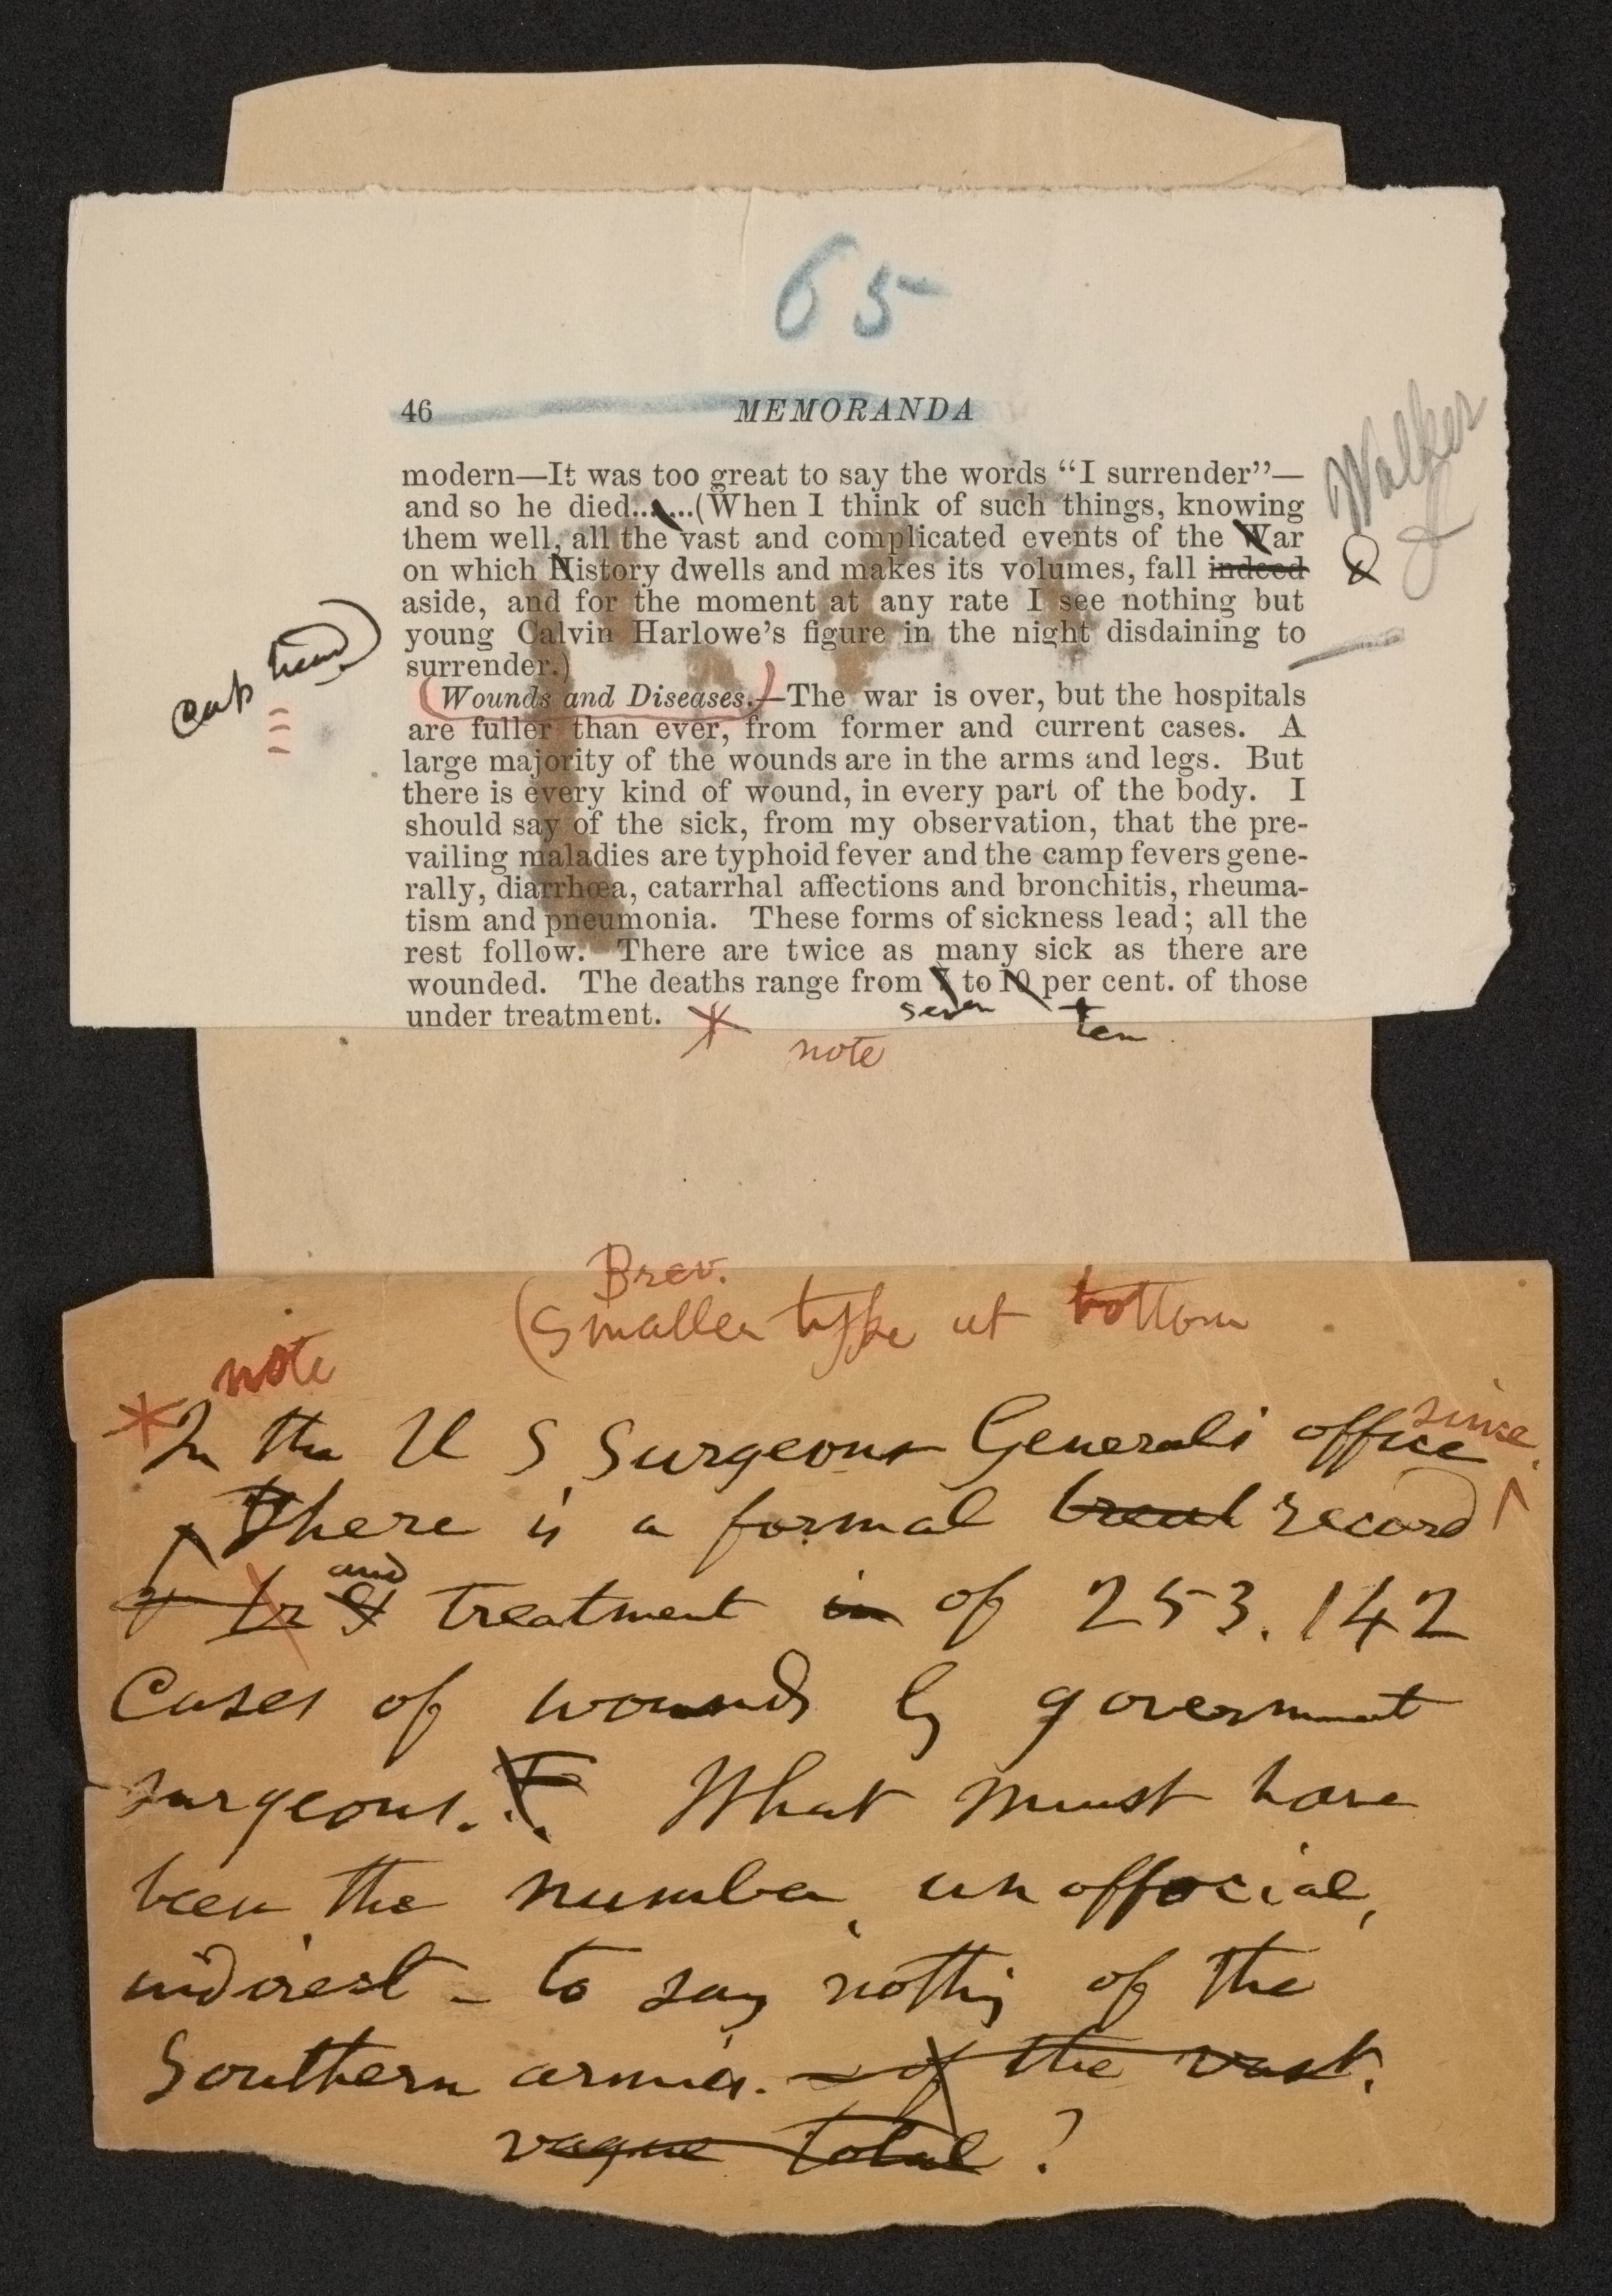 65
46 MEMORANDA
modern—It was too great to say the words “I surrender”—
and so he died.......(When I think of such things, knowing
them well, all the vast and complicated events of the War
on which History dwells and makes its volumes, fall indeed
aside, and for the moment at any rate I see nothing but
young Calvin Harlowe’s figure in the night disdaining to
surrender.)
Walker
cap head
Wounds and Diseases.—The war is over, but the hospitals
are fuller than ever, from former and current cases. A
large majority of the wounds are in the arms and legs. But
there is every kind of wound, in every part of the body. I
should say of the sick, from my observation, that the pre-
vailing maladies are typhoid fever and the camp fevers gene-
rally, diarrhœa, catarrhal affections and bronchitis, rheuma-
tism and pneumonia. These forms of sickness lead; all the
rest follow. There are twice as many sick as there are
wounded. The deaths range from 7 to 10 per cent. of those
seven ten
under treatment. *
note
Brev.
(Smaller type at bottom
note
since
* In the U S Surgeons Generals office
There is a formal record
and
treatment in of 253.142
Cases of wounds by government
surgeons. What must have
been the number, unofficial,
indirect – to say nothing of the
Southern armies. – of the vast.
vague total ?